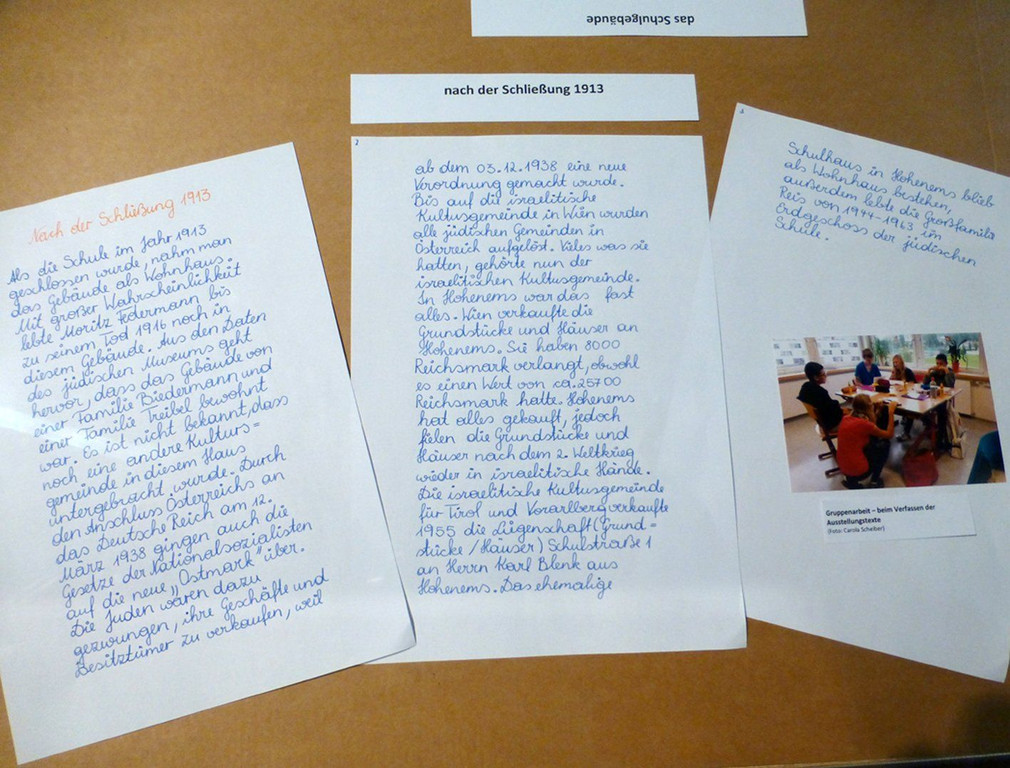 das Schulgebäude
nach der Schließung 1913
Nach der Schlüßung 1913
Als die Schule im Jahr 1913
geschlossen wurde, nahm man
das Gebäude als Wohnhaus.
Mit großer Wahrscheinlichkeit
lebte Moritz Federmann bis
zu seinem Tod 1916 noch in
diesem Gebäude. Aus den Daten
des jüdischen Museums geht
hervor, dass das Gebäude von
einer Familie Biedermann und
einer Familie Treibel bewohnt
war. Es ist nicht bekannt, dass
noch eine andere Kulturs=
gemeinde in diesem Haus
untergebracht wurde. Durch
den Anschluss Österreichs an
das Deutsche Reich am 12.
März 1938 gingen auch die
Gesetze der Nationalsozialisten
auf die neue „Ostmark" über.
Die Juden waren dazu
gezwungen, ihre Geschäfte und
Besitztümer zu verkaufen, weil
2
ab dem 03.12.1938 eine neue
Verordnung gemacht wurde.
Bis auf die israelitische
Kultusgemeinde in Wien wurden
alle jüdischen Gemeinden in
Österreich aufgelöst. Vieles was sie
hatten, gehörte nun der
israelitischen Kultusgemeinde.
In Hohenems war das fast
alles. Wien verkaufte die
Grundstücke und Häuser an
Hohenems. Sie haben 8000
Reichsmark verlangt, obwohl
es einen Wert von ca. 25700
Reichsmark hatte. Hohenems
hat alles gekauft, jedoch
fielen die Grundstücke und
Häuser nach dem 2. Weltkrieg
wieder in israelitische Hände.
Die israelitische Kultusgemeinde
für Tirol und Vorarlberg verkaufte
1955 die Liegenschaft (Grund=
stücke / Häuser) Schulstraße 1
an Herrn Karl Blenk aus
Hohenems. Das ehemalige
3
Schulhaus in Hohenems blieb
als Wohnhaus bestehen,
außerdem lebte die Großfamilie
Reis von 1944-1963 im
Erdgeschoss der jüdischen
Schule.
Gruppenarbeit – beim Verfassen der
Ausstellungstexte
(Foto: Carola Scheiber)